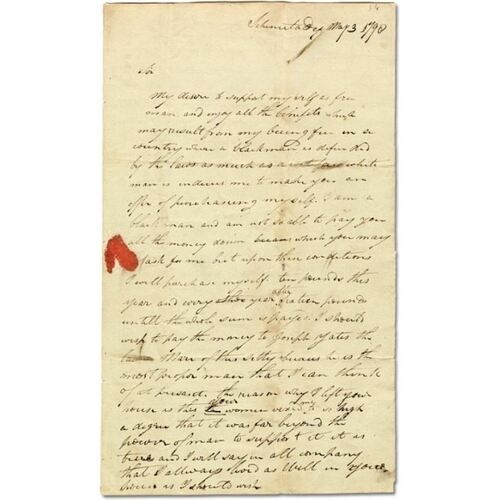 Schenectady May 3 1798
Sir
My desire to support my self as free
man and enjoy all the benifits which
may result from my being free in a
country where a blackman is defended
by the laws as much as a white
man is enduces me to make you an
offer of purchaseing myself. I am a
black man and am not so able to pay you
all the money down because which you may
ask for me but upon these conditions
I will purchase myself. ten pounds this
year and every year after fifteen pounds
untill the whole sum is payes. I should
wish to pay the money to Joseph Yates the
Mare of this sitty becaus he is the
most propor man that I can think
of at present. the reason why I left your
house is this your women vexed me to so high
a degree that it was far beyond the
power of man to support it it is
true and I will say in all company
that I allways lived as well in your
house as I should wish